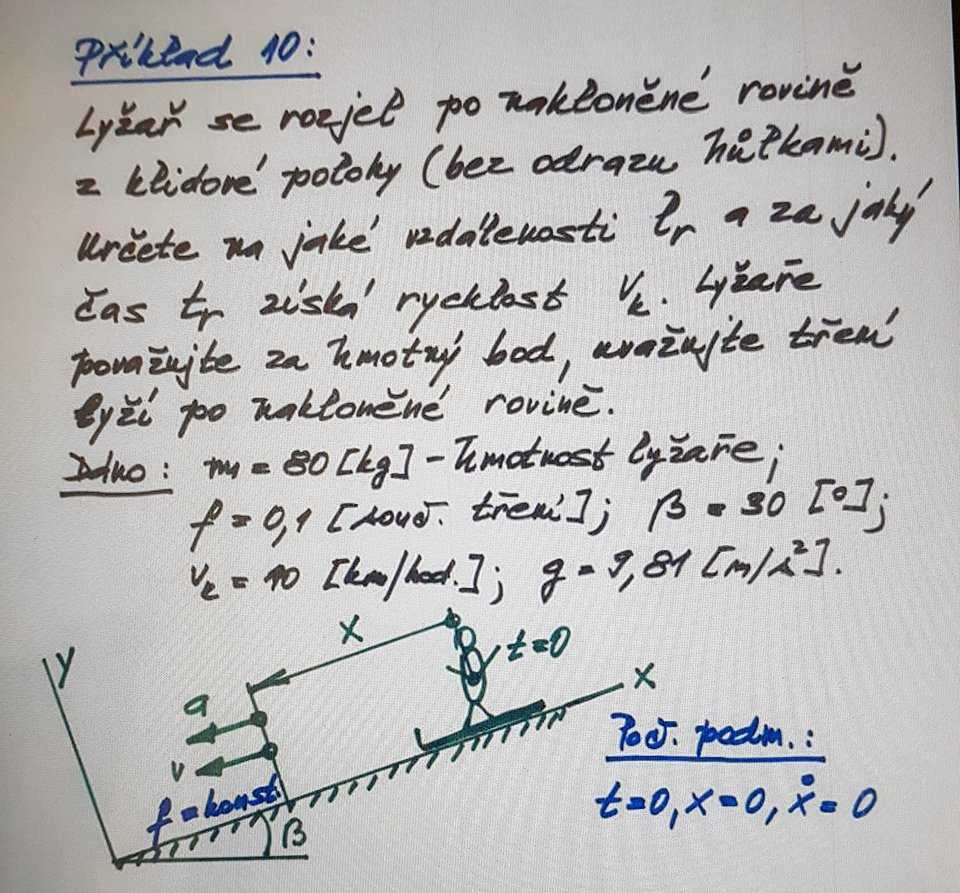 Příklad 10:
Lyžař se rozjel po nakloněné rovině
z klidové polohy (bez odrazu hůlkami).
Určete na jaké vzdálenosti lr a za jaký
čas tr získá rychlost vk. Lyžaře
považujte za hmotný bod, uvažujte tření
lyží po nakloněné rovině.
Dáno: m = 80 [kg] - hmotnost lyžaře;
f = 0,1 [souč. tření]; β = 30 [°];
vk = 10 [km/hod.]; g = 9,81 [m/s²].
y
x
t=0
x
a
v
f = konst.
β
Poč. podm.:
t=0, x=0, ẋ=0